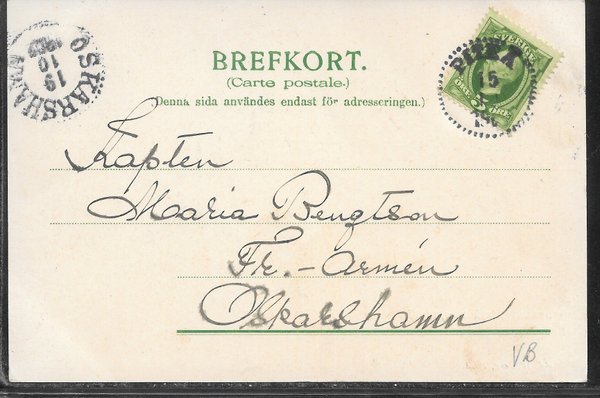 OSKARSHAMN
19
10
BREFKORT.
(Carte postale.)
(Denna sida användes endast för adresseringen.)
SVERIGE
PITEÅ
15
5
Kapten
Maria Bengtson
Fr.-Armén
Oskarshamn
VB